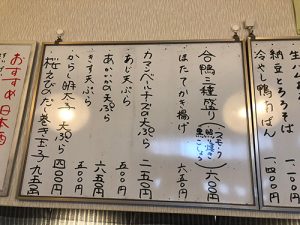 生
納豆とろろそば 一一〇〇
冷やし鴨南ばん 一四〇〇
合鴨三種盛り(スモーク 黒こしょう) 六〇〇円
ほたてかき揚げ 六五〇円
カマンベールチーズの天ぷら 二五〇円
あじ天ぷら 五〇〇
あかいかの天ぷら 六五〇
きす天ぷら 五〇〇円
からし明太子天ぷら 四〇〇円
桜えびのだし巻き玉子 九五〇円
おすすめ日本酒